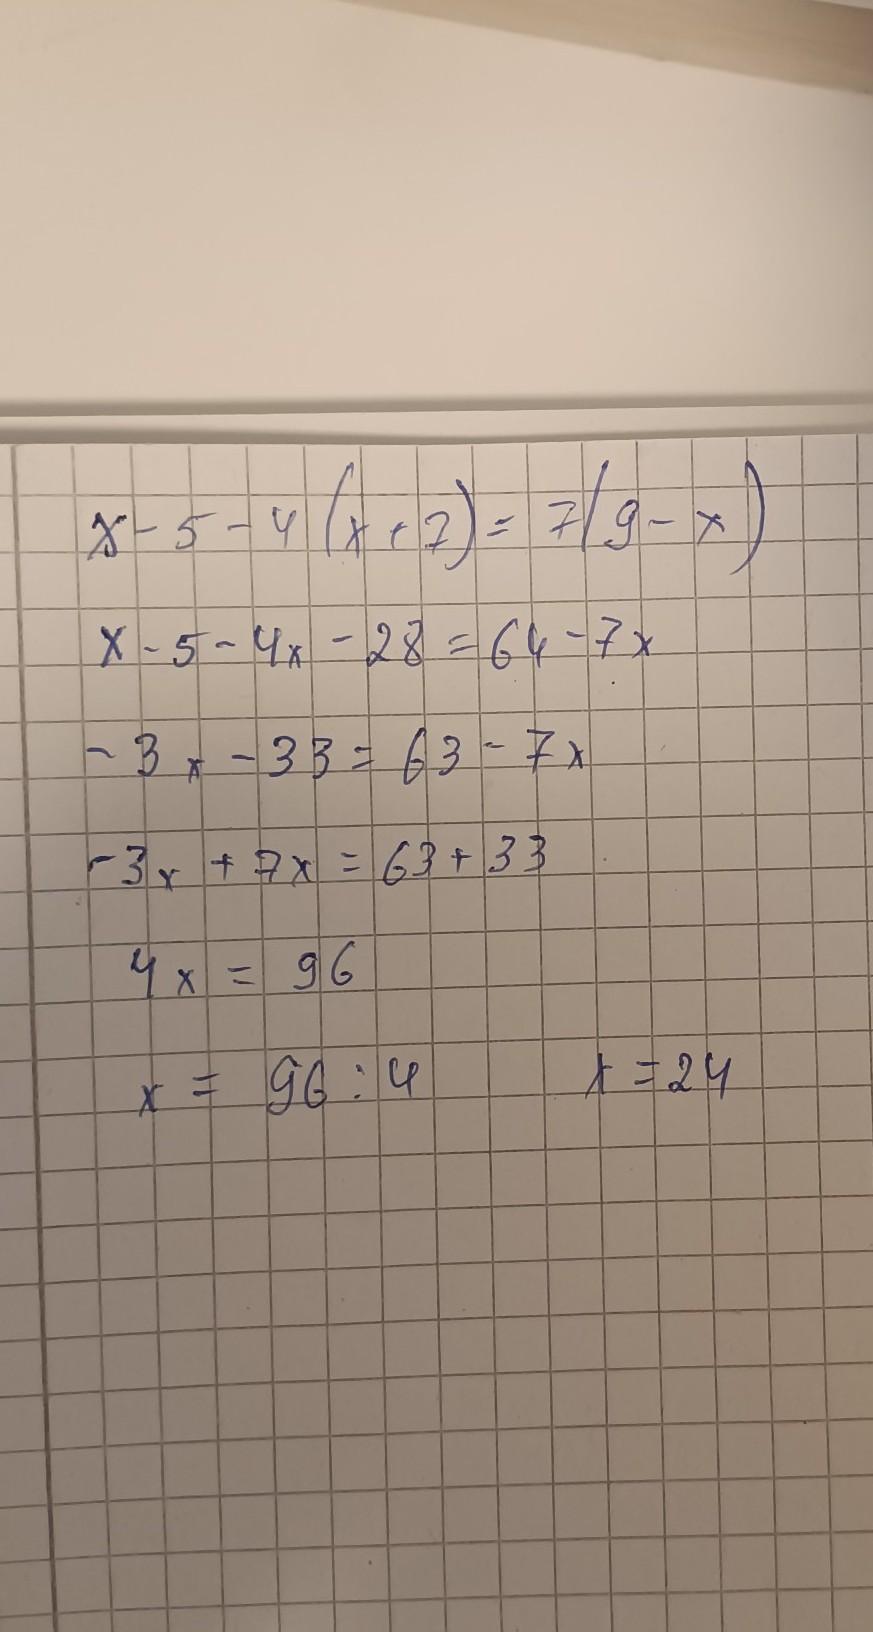 x - 5 - 4(x + 7) = 7(9 - x)
x - 5 - 4x - 28 = 64 - 7x
-3x - 33 = 63 - 7x
-3x + 7x = 63 + 33
4x = 96
x = 96 : 4 x = 24